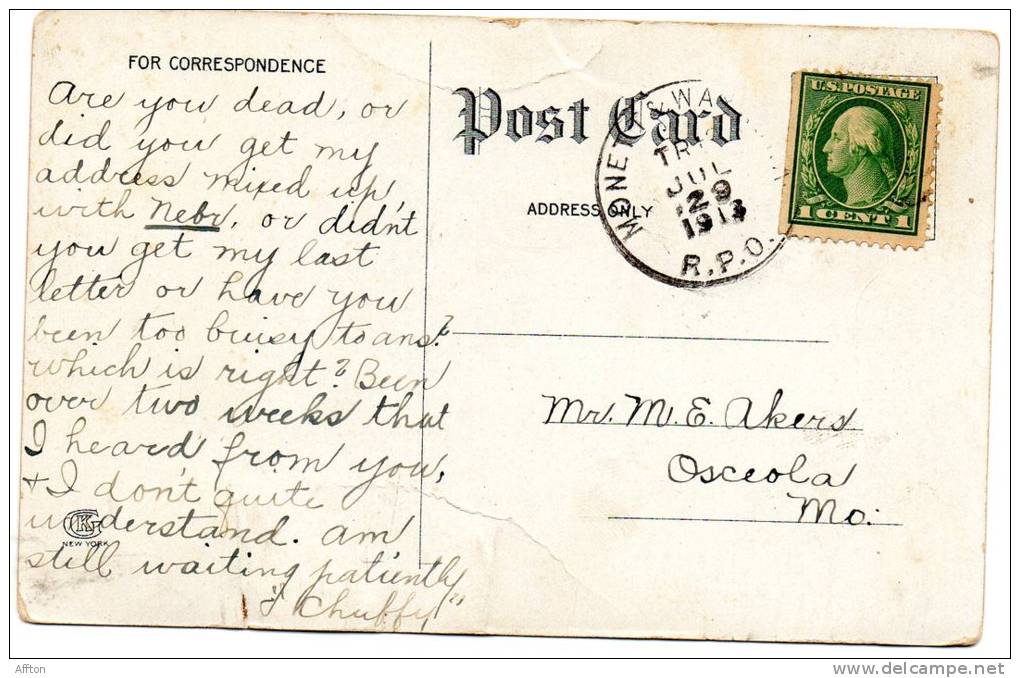 FOR CORRESPONDENCE
Are you dead, or
did you get my
address mixed up
with Nebr, or didn't
you get my last
letter or have you
been too buisy to ans?
which is right? Been
over two weeks that
I heard from you,
+ I don't quite
understand. am
still waiting patiently
"Chuffy"
CKG
NEW YORK
Post Card
ADDRESS ONLY
MONETT & WA
TR
JUL
29
1913
R.P.O.
U.S. POSTAGE
1 CENT 1
Mr. M. E. Akers
Osceola
Mo.
Affton
delcampe.net